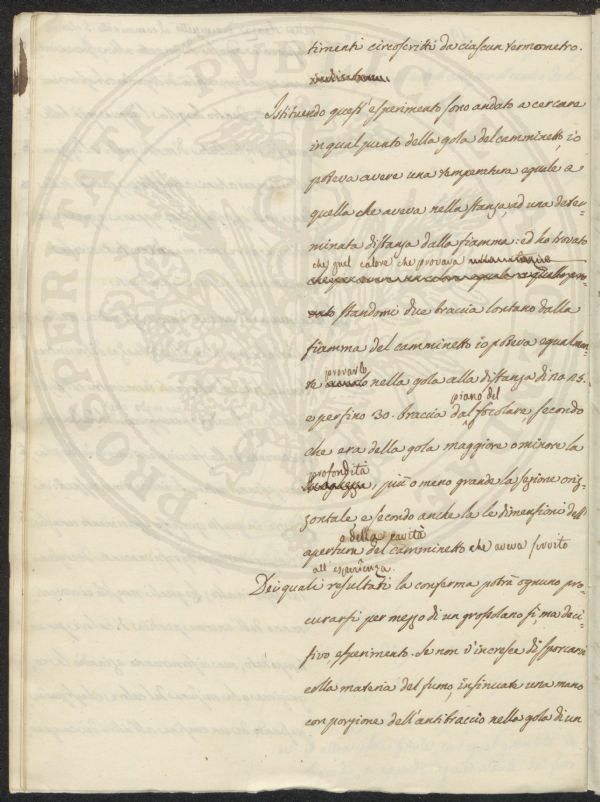 timenti circoscritti da ciascun termometro.
Istituendo quest'esperimento sono andato a cercare
in qual punto della gola del camminetto, io
poteva avere una temperatura eguale a
quella che aveva nella stanza, ad una deter-
minata distanza dalla fiamma: ed ho trovato
che quel calore che provava
standomi due braccia lontano dalla
fiamma del camminetto io poteva egualmen-
te provarlo nella gola alla distanza di 20. 25.
e perfino 30. braccia dal piano del focolare secondo
che era della gola maggiore o minore la
profondità, più o meno grande la sezione oriz-
zontale e secondo anche la le dimensioni dell'
apertura e della cavità del camminetto che aveva servito
all'esperienza.
Dei quali resultati la conferma potrà ognuno pro-
curarsi per mezzo di un grossolano sì, ma deci-
sivo, esperimento. Se non v'incresce di sporcarvi
colla materia del fumo, insinuate una mano
con porzione dell'antibraccio nella gola di un
PROSPERITATI PUBLICAE